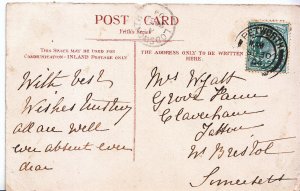 POST CARD
Frith's Series
THIS SPACE MAY BE USED FOR
COMMUNICATION—INLAND POSTAGE ONLY
THE ADDRESS ONLY TO BE WRITTEN
HERE.
With best
Wishes trusting
all are well
ever absent ever
dear
Mrs Wyatt
Grove Farm
Claverham
Yatton
Nr Bristol
Somerset